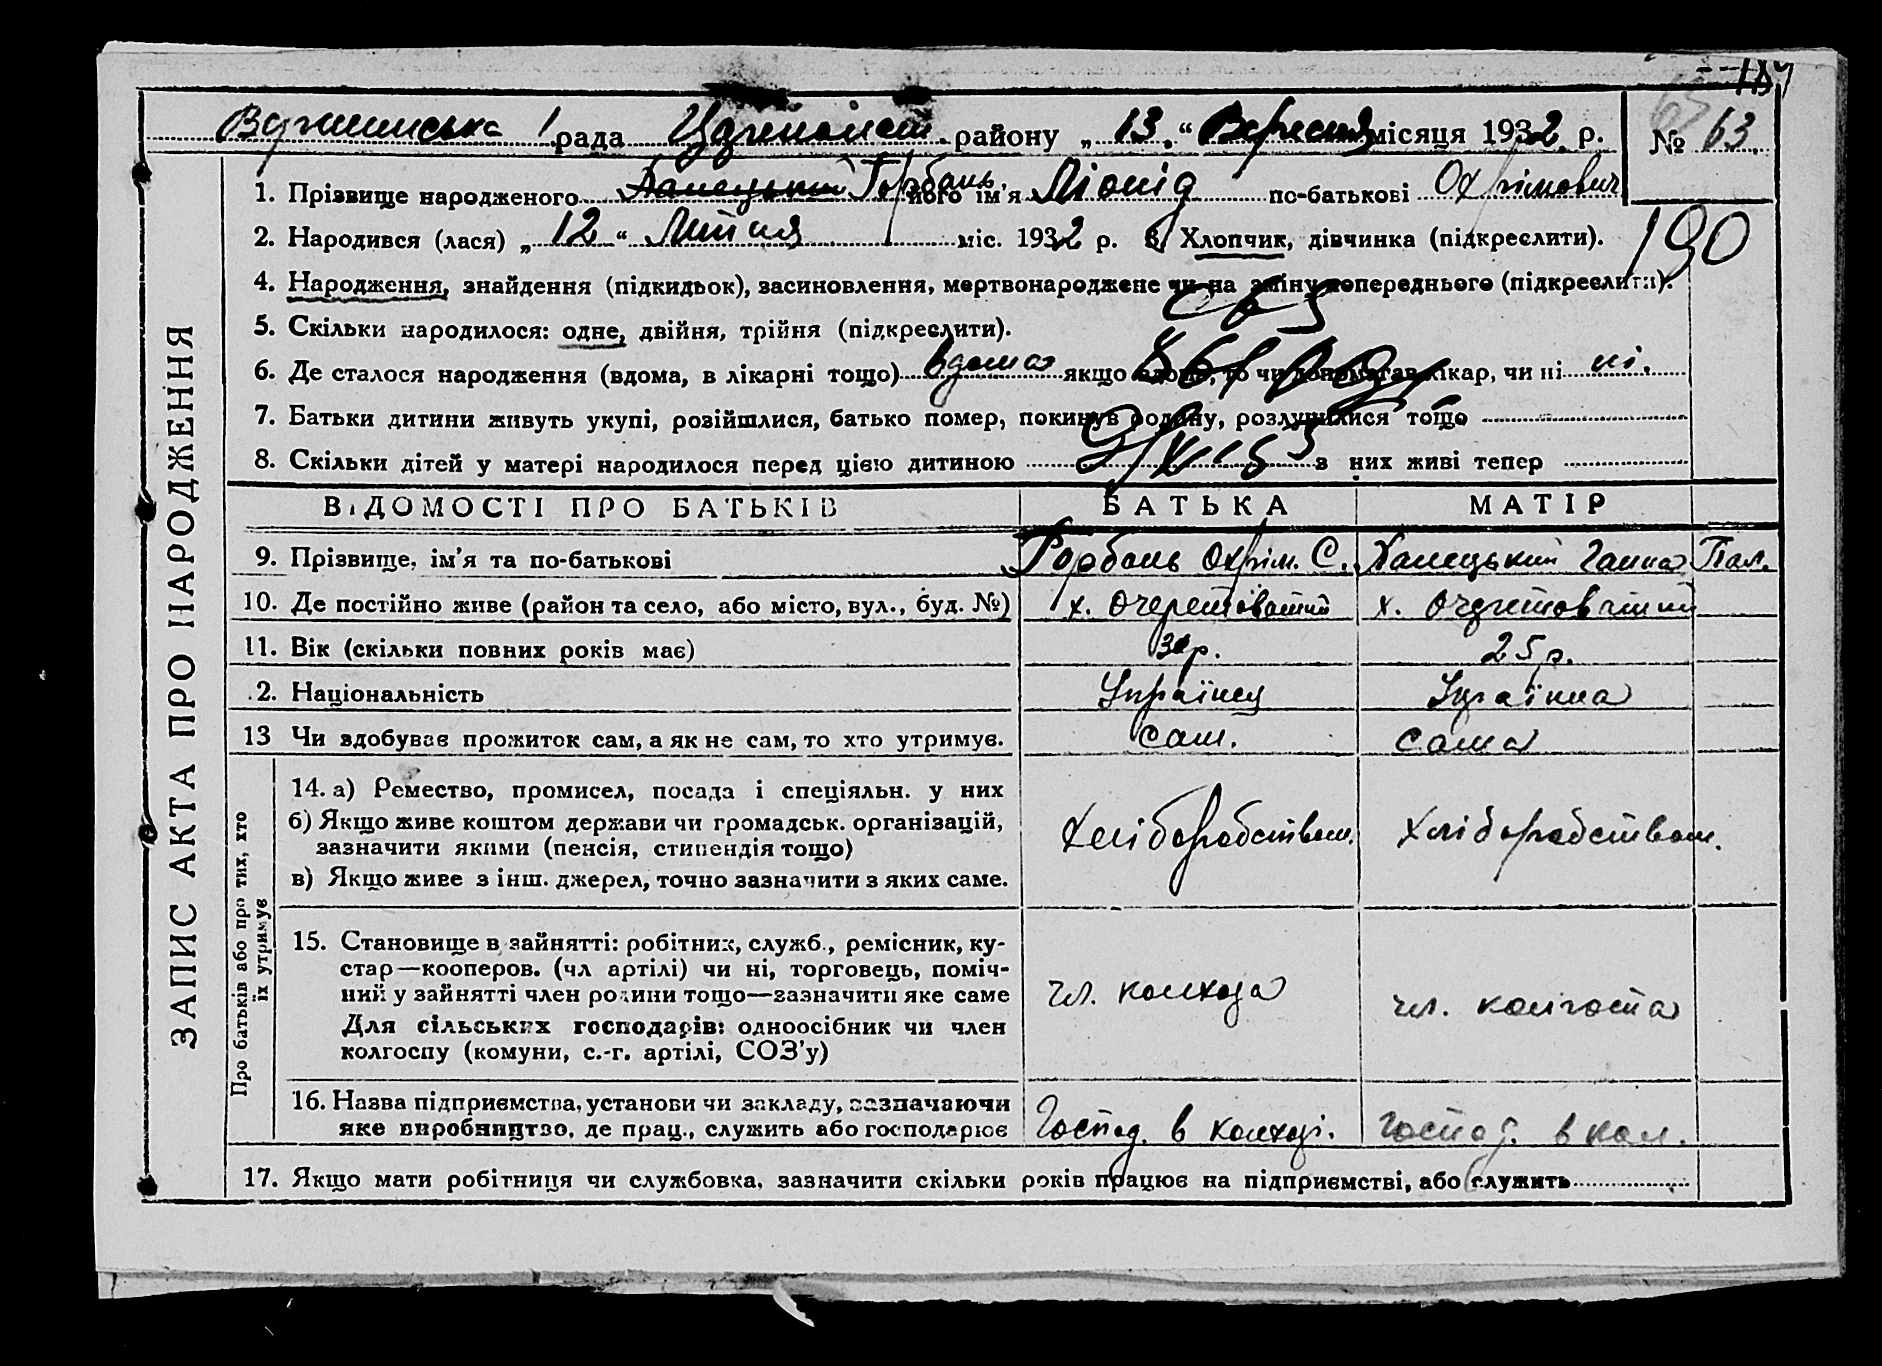 рада района „ 13 “ Вересня місяця 1932 р. № 63
1. Прізвище народженого Горбань його ім'я Ліонід по-батькові Охрімович
2. Народився (лася) „ 12 “ Липня міс. 1932 р. Хлопчик, дівчинка (підкреслити).
190
4. Народження, знайдення (підкидьок), засиновлення, мертвонароджене чи на зміну попереднього (підкреслити).
5. Скільки народилося: одне, двійня, трійня (підкреслити).
6. Де сталося народження (вдома, в лікарні тощо) вдома якщо вдома, то чи допомагав лікар, чи ні ні.
7. Батьки дитини живуть укупі, розійшлися, батько помер, покинув родину, розлучилися тощо
8. Скільки дітей у матері народилося перед цією дитиною з них живі тепер
ВІДОМОСТІ ПРО БАТЬКІВ БАТЬКА МАТІР
9. Прізвище, ім'я та по-батькові Горбань Охрім. С. Ганна Пал.
10. Де постійно живе (район та село, або місто, вул., буд. №) х. Очеретоватий х. Очеретоватий
11. Вік (скільки повних років має) 25 р.
12. Національність Українец Українка
13 Чи здобував прожиток сам, а як не сам, то хто утримує. сам. сама
14. а) Ремество, промисел, посада і спеціяльн. у них
б) Якщо живе коштом держави чи громадськ. організацій,
зазначити якими (пенсія, стипендія тощо) хліборобством. хліборобством.
в) Якщо живе з інш. джерел, точно зазначити з яких саме.
15. Становище в зайнятті: робітник, служб., ремісник, ку-
стар—кооперов. (чл артілі) чи ні, торговець, поміч-
ний у зайнятті член родини тощо—зазначити яке саме чл. колхоза чл. колгоспа
Для сільських господарів: одноосібник чи член
колгоспу (комуни, с.-г. артілі, СОЗ'у)
16. Назва підприємства, установи чи закладу, зазначаючи
яке виробництво, де прац., служить або господарює Господ. в колхозі. господ. в кол.
17. Якщо мати робітниця чи службовка, зазначити скільки років працює на підприємстві, або служить
ЗАПИС АКТА ПРО НАРОДЖЕННЯ
Про батьків або про тих, хто
їх утримує